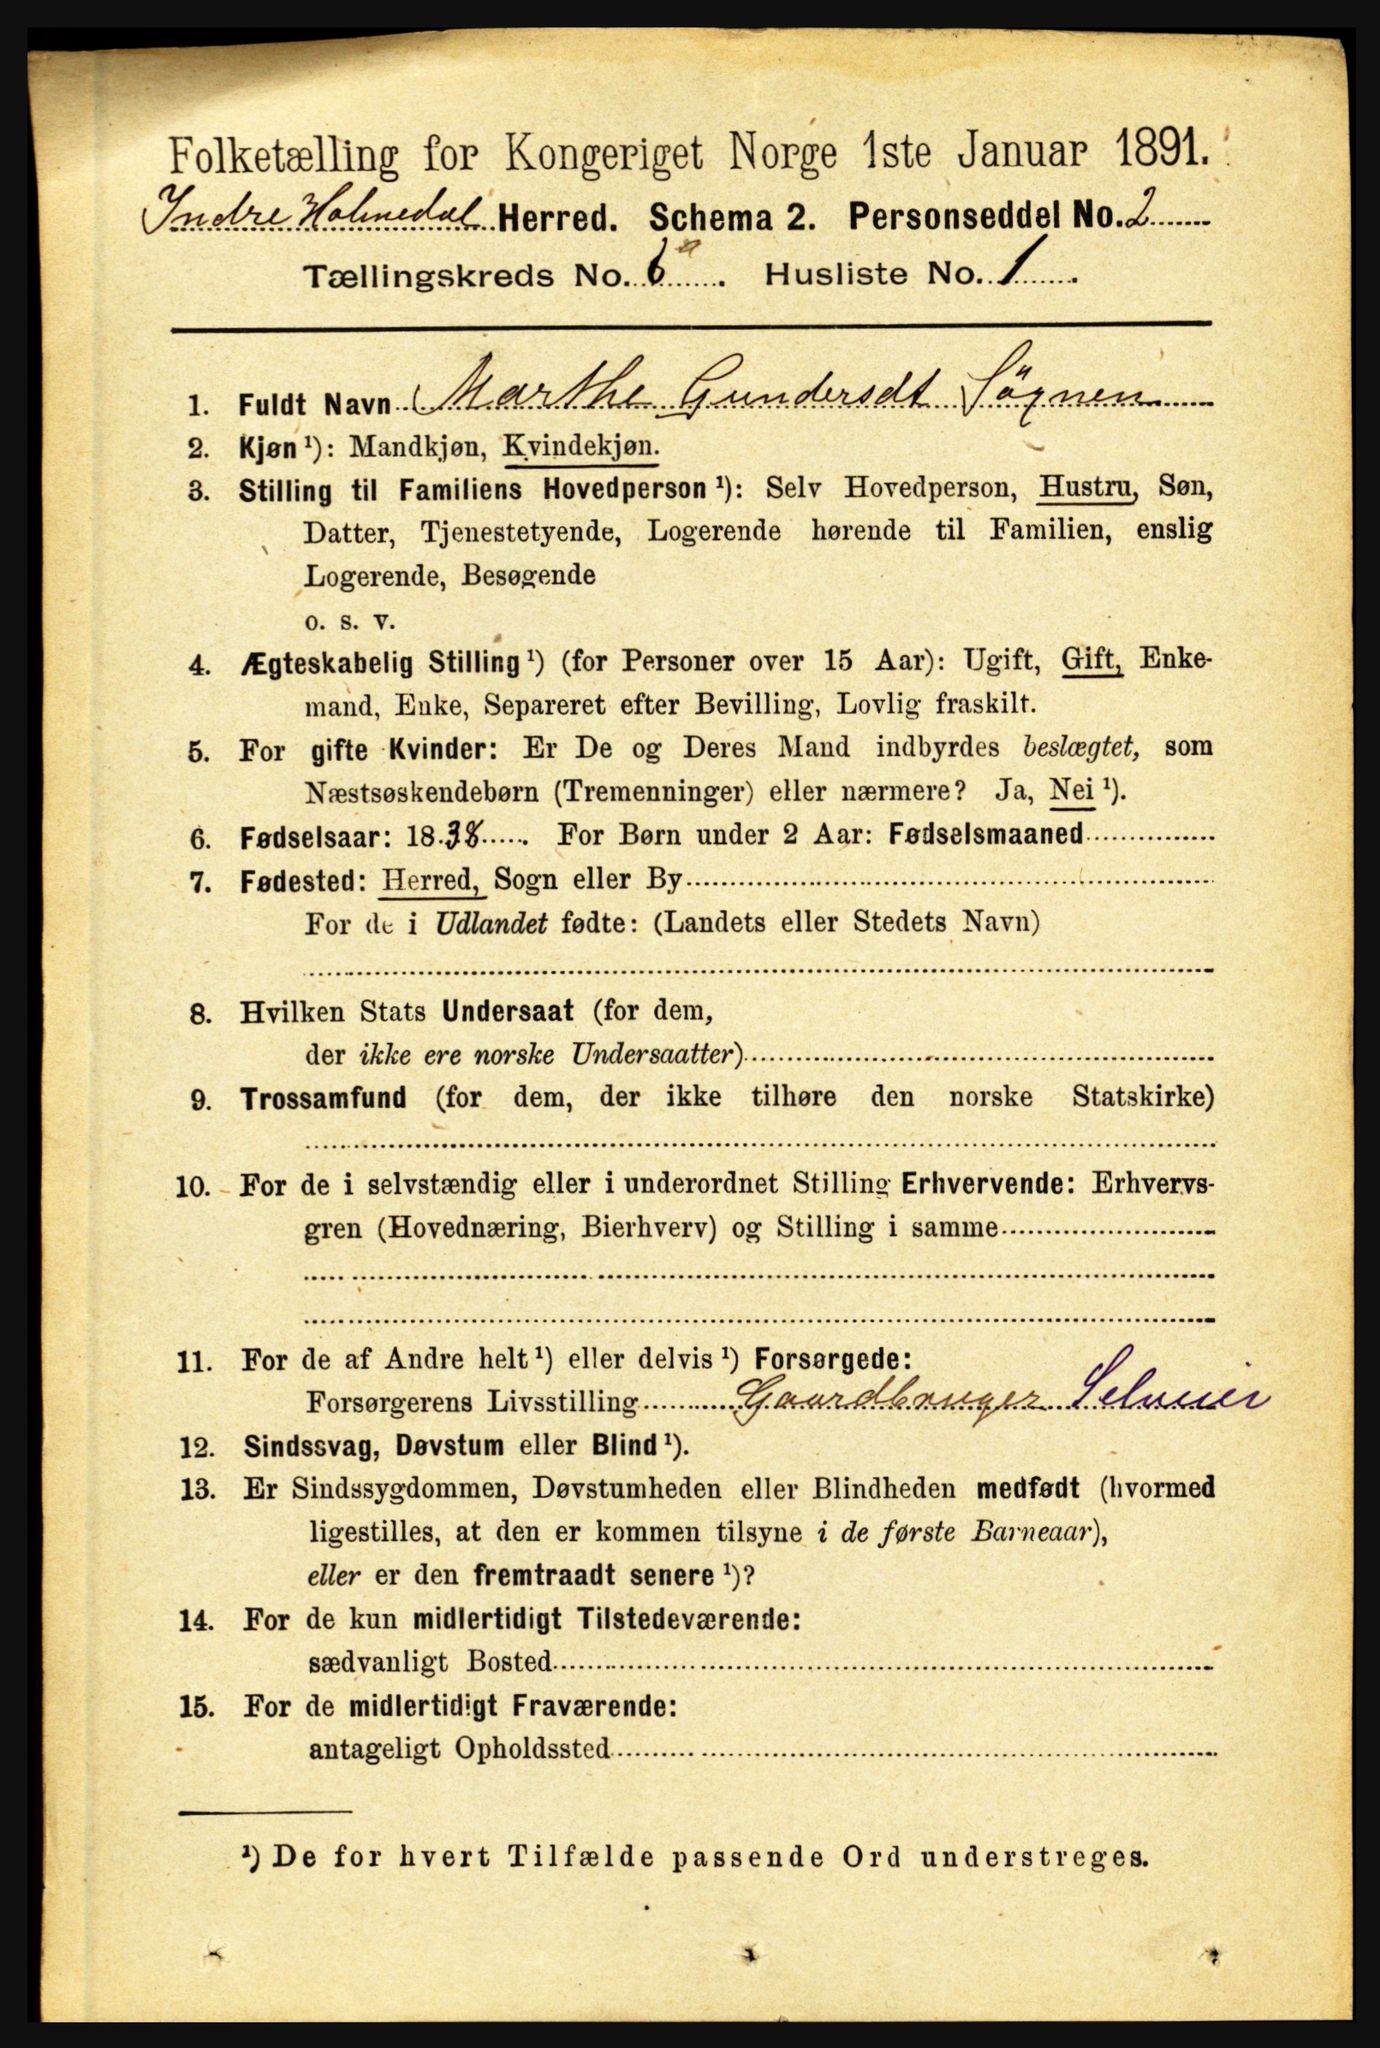 Folketælling for Kongeriget Norge 1ste Januar 1891.
Indre Holmedal Herred. Schema 2. Personseddel No. 2
Tællingskreds No. 6a. Husliste No. 1.
1. Fuldt Navn Marthe Gundersdt Søgnen
2. Kjøn ¹): Mandkjøn, Kvindekjøn.
3. Stilling til Familiens Hovedperson ¹): Selv Hovedperson, Hustru, Søn,
Datter, Tjenestetyende, Logerende hørende til Familien, enslig
Logerende, Besøgende
o. s. v.
4. Ægteskabelig Stilling ¹) (for Personer over 15 Aar): Ugift, Gift, Enke-
mand, Enke, Separeret efter Bevilling, Lovlig fraskilt.
5. For gifte Kvinder: Er De og Deres Mand indbyrdes beslægtet, som
Næstsøskendebørn (Tremenninger) eller nærmere? Ja, Nei ¹).
6. Fødselsaar: 1838. For Børn under 2 Aar: Fødselsmaaned
7. Fødested: Herred, Sogn eller By
For de i Udlandet fødte: (Landets eller Stedets Navn)
8. Hvilken Stats Undersaat (for dem,
der ikke ere norske Undersaatter)
9. Trossamfund (for dem, der ikke tilhøre den norske Statskirke)
10. For de i selvstændig eller i underordnet Stilling Erhvervende: Erhvervs-
gren (Hovednæring, Bierhverv) og Stilling i samme
11. For de af Andre helt ¹) eller delvis ¹) Forsørgede:
Forsørgerens Livsstilling Gaardbruger Selveier
12. Sindssvag, Døvstum eller Blind ¹).
13. Er Sindssygdommen, Døvstumheden eller Blindheden medfødt (hvormed
ligestilles, at den er kommen tilsyne i de første Barneaar),
eller er den fremtraadt senere ¹)?
14. For de kun midlertidigt Tilstedeværende:
sædvanligt Bosted
15. For de midlertidigt Fraværende:
antageligt Opholdssted
¹) De for hvert Tilfælde passende Ord understreges.